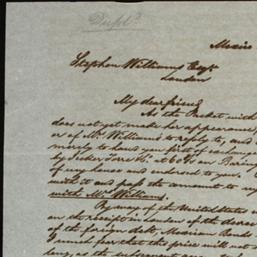 Dupl.
Mexico
Stephen Williams Esqr.
London
My dear friend
As the Packet with
does not yet make her appearance,
or of Mr. Williams to reply to, and
merely to hand you first of exchange
by at 60 d/ on Baring
of my house and endorsed to your
with it and pass the amount to my
with Mr. Williams.
By way of the United States
on the receipt in London of the decree
of the foreign debt, Mexican Bonds
I much fear that this price will not
long, as the